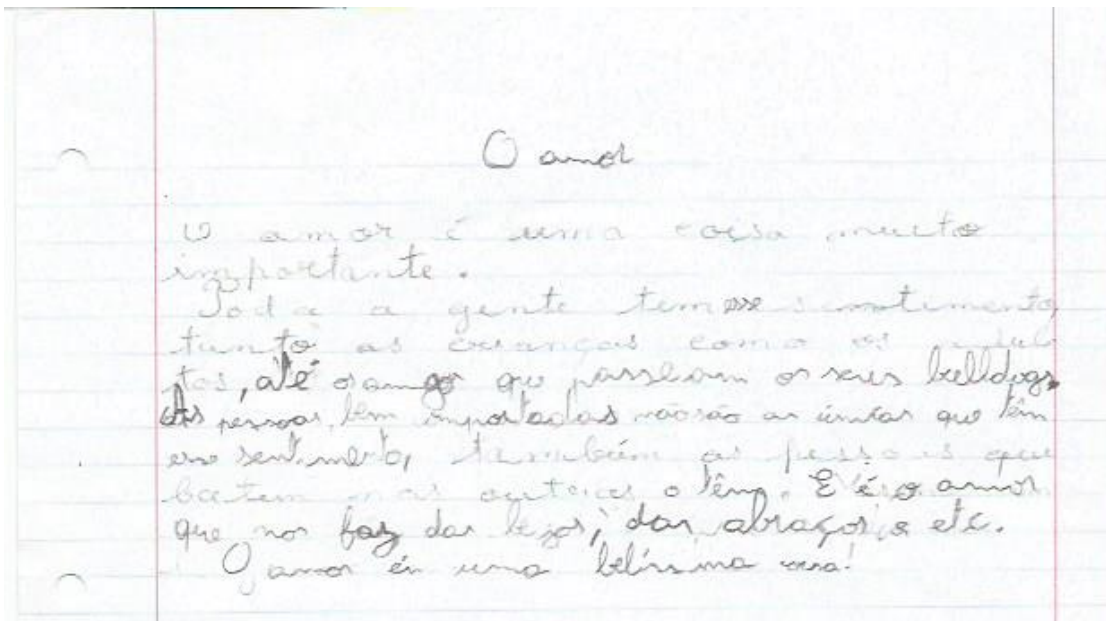 O amor
O amor é uma coisa muito
importante.
Toda a gente tem esse sentimento,
tanto as crianças como os adul
tos, até os que passeiam os seus bulldogs.
As pessoas bem não são as únicas que têm
esse sentimento, também as pessoas que
batem nas outras o têm. E é o amor
que nos faz dar beijos, dar abraços, e etc.
O amor é uma belíssima coisa!